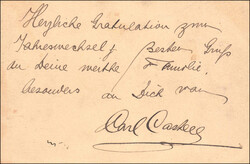 Herzliche Gratulation zum
Jahreswechsel, Besten Gruß
an Deine werthe Familie,
besonders an Dich von
Carl